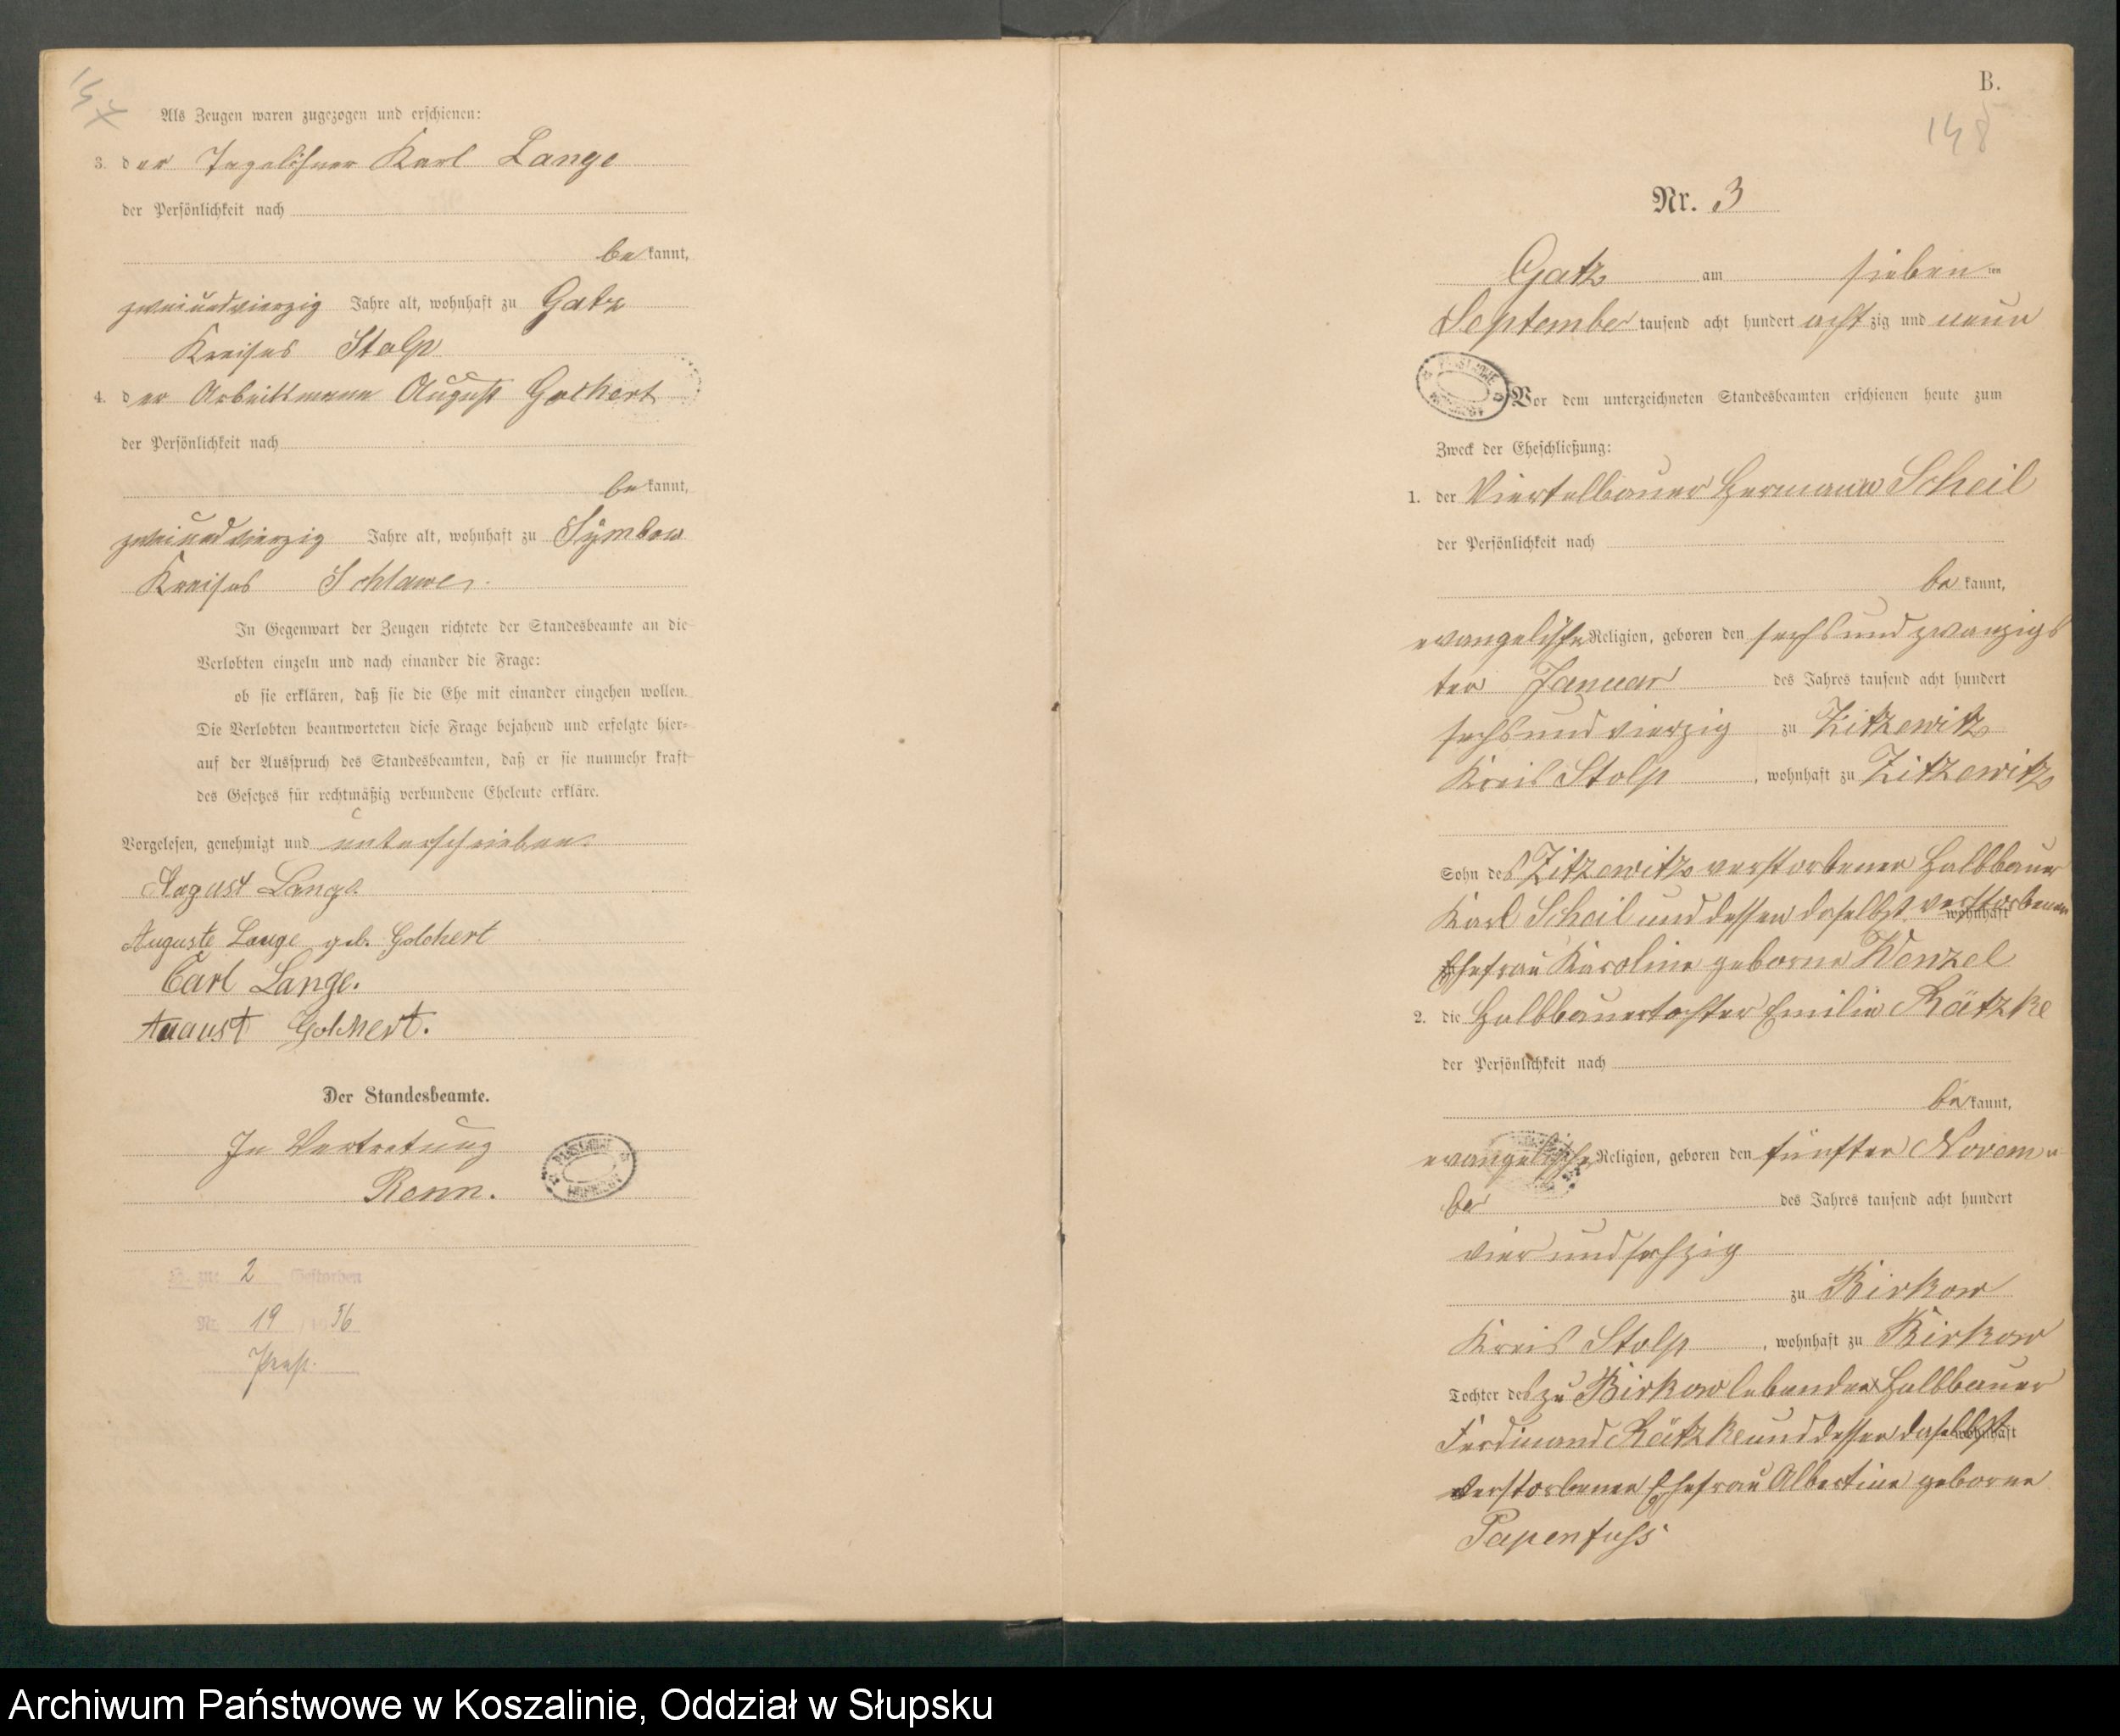 Als Zeugen waren zugezogen und erschienen:
3. der Tagelöhner Karl Lange
der Persönlichkeit nach
bekannt,
zweiundvierzig Jahre alt, wohnhaft zu Gatz
Kreises Stolp
4. der Arbeitsmann August Golchert
der Persönlichkeit nach
bekannt,
zweiundvierzig Jahre alt, wohnhaft zu Symbow
Kreises Schlawe.
In Gegenwart der Zeugen richtete der Standesbeamte an die
Verlobten einzeln und nach einander die Frage:
ob sie erklären, daß sie die Ehe mit einander eingehen wollen.
Die Verlobten beantworteten diese Frage bejahend und erfolgte hier-
auf der Ausspruch des Standesbeamten, daß er sie nunmehr kraft
des Gesetzes für rechtmäßig verbundene Eheleute erkläre.
Vorgelesen, genehmigt und unterschrieben.
August Lange
Auguste Lange geb. Golchert
Carl Lange.
August Golchert.
Der Standesbeamte.
In Vertretung
Renn.
H. zu: 2 Gestorben
Nr. 19 /1936
B.
148
Nr. 3
Gatz am sieben ten
September tausend acht hundert achtzig und neun
Vor dem unterzeichneten Standesbeamten erschienen heute zum
Zweck der Eheschließung:
1. der Viertelbauer Hermann Scheil
der Persönlichkeit nach
bekannt,
evangelischer Religion, geboren den sechsundzwanzigs
ten Januar des Jahres tausend acht hundert
sechsundvierzig zu Zitzewitz
Kreis Stolp, wohnhaft zu Zitzewitz
Sohn des Zitzewitz verstorbenen Halbbauer
Karl Scheil und dessen daselbst verstorbenen wohnhaft
Ehefrau Karoline geborne Wenzel
2. die Halbbauertochter Emilie Rätzke
der Persönlichkeit nach
bekannt,
evangelischer Religion, geboren den fünften Novem-
ber des Jahres tausend acht hundert
vier und sechzig
zu Birkow
Kreis Stolp, wohnhaft zu Birkow
Tochter des zu Birkow lebenden Halbbauer
Ferdinand Rätzke und dessen daselbst wohnhaft
verstorbenen Ehefrau Albertine geborne
Papenfuss
Archiwum Państwowe w Koszalinie, Oddział w Słupsku